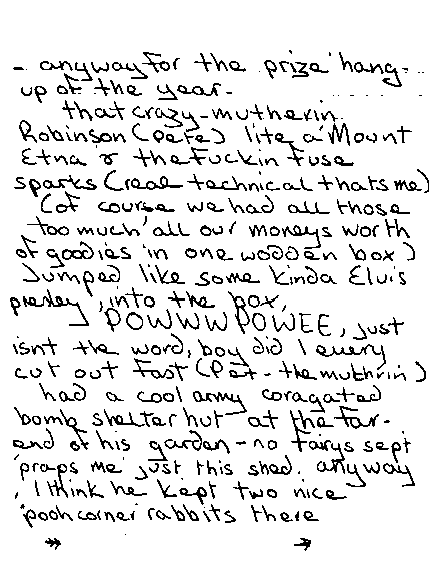 - anyway for the prize hang-
up of the year-
that crazy-mutherin
Robinson (Pete) lite a Mount
Etna & the fuckin fuse
sparks (real technical thats me)
(of course we had all those
too much' all our moneys worth
of goodies in one wodden box)
Jumped like some kinda Elvis
presley, into the box,
POWWWPOWEE, just
isnt the word, boy did I every
cut out fast (Pet-the muthrin)
had a cool army coragated
bomb shelter hut at the far-
end of his garden-no fairys sept
praps me just this shed. anyway
, I think he kept two nice
'pooh corner rabbits there